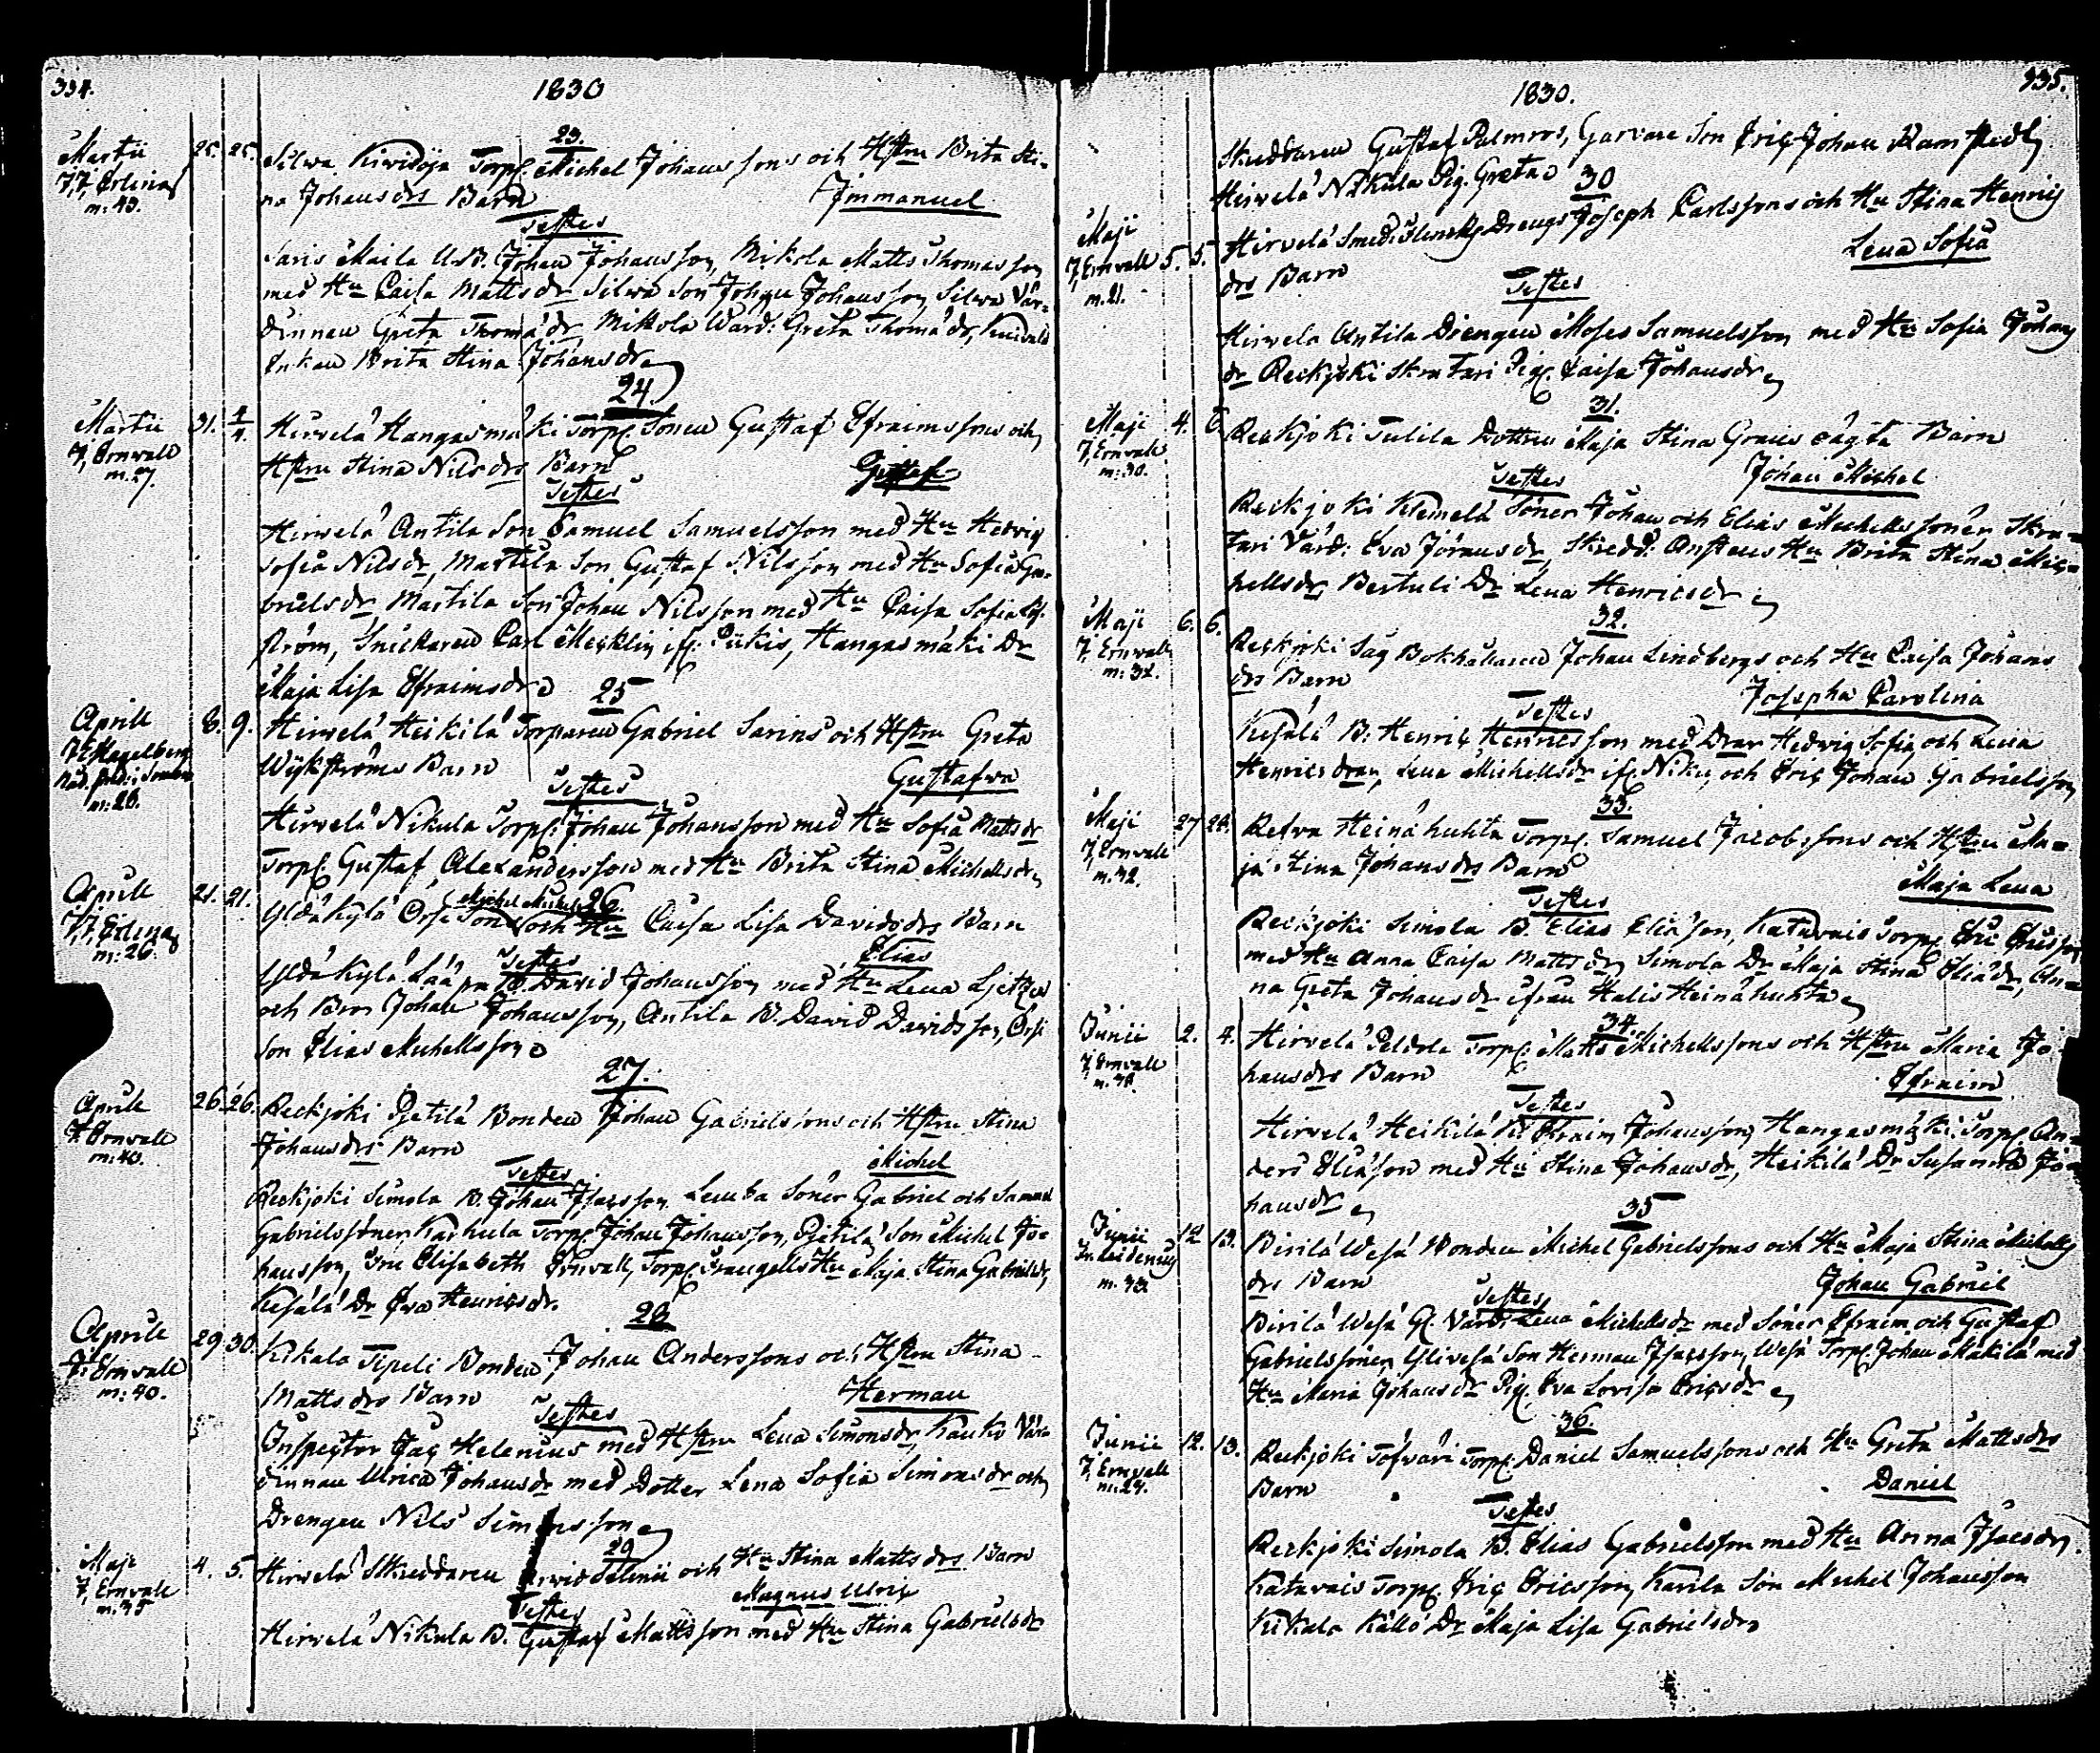 334.
1830
23.
Martii 25. 25. Silwa Kirisoja Torp. Michel Johanssons och Hstru Brita Sti-
m: 43. na Johansdrs Barn Immanuel
Testes
Saris Maila Johan Johansson, Mikola Matts Thomasson
med Hu Caisa Mattsdr Silwa Son Johan Johansson Silwa Vär-
dinnan Greta Thomädr, Mikola Wärd: Greta Thomädr,
Enkan Brita Stina Johansdr
24.
Martii 31. 4/4. Hirvelä Hangasmäki Torp. Sonen Gustaf Efraimssons och
J. Ernvall
m. 27. Hstru Stina Nilsdrs Barn Gustaf
Testes
Hirvelä Antila Son Samuel Samuelsson med Hu Hedvig
Sofia Nilsdr, Martila Son Gustaf Nilsson med Hu Sofia Ga-
brielsdr Martila Son Johan Nilsson med Hu Caisa Sofia
ström, Snickaren Carl Mecklin if. Piikis, Hangasmäki Dr
Maja Lisa Efraimsdr
25
Aprill 8. 9. Hirvelä Heikilä Torparen Gabriel Sarins och Hstru Greta
m: 28. Wykströms Barn Gustafva
Testes
Hirvelä Nikula Torp: Johan Johansson med Hu Sofia Mattsdr
Torp. Gustaf Alexandersson med Hu Brita Stina Michelsdr
26.
Aprill 21. 21. Yldäkylä Orsi Son och Hu Caisa Lisa Davidsdrs Barn
m: 26. Elias
Testes
Yldäkylä B. David Johansson med Hu Lena
och Bror Johan Johansson, Antila B. David Davidsson, Orsi
Son Elias Michelsson
27.
Aprill 26. 26. Reckjoki Pietilä Bonden Johan Gabrielssons och Hstru Stina
J. Ernvall
m: 40. Johansdrs Barn Michel
Testes
Reckjoki Simola B. Johan Isacsson Söner Gabriel och Samuel
Gabrielssöner Karhula Torp Johan Johansson, Pietilä Son Michel Jo-
hansson, Elisabeth Ernvall, Torp. Hu Maja Stina Gabrielsdr,
Kesälä Dr Eva Henricsdr.
28
Aprill 29. 30. Kikala Tipeli Bonden Johan Anderssons och Hstru Stina
J. Ernvall
m: 40. Mattsdrs Barn Herman
Testes
Inspector Isac Helenius med Hstru Lena Simonsdr Kauko Vär-
dinnan Ulrica Johansdr med Dotter Lena Sofia Simonsdr och
Drengen Nils Simonsson
29
Maji 4. 5. Hirvelä Skreddaren Arvid Selinii och Hu Stina Mattsdrs Barn
J. Ernvall
m. 35 Magnus Ulric
Testes
Hirvelä Nikula B. Gustaf Mattsson med Hu Stina Gabrielsdr
335.
1830.
Skreddaren Gustaf Palmros, Garvare Son Eric Johan Ramstedt
Hirvelä Nikula Pig. Greta
30
Maji 5. 5. Hirvelä Smed: Drengs Joseph Carlssons och Hu Stina Henrics
J. Ernvall
m. 21. drs Barn Lena Sofia
Testes
Hirvelä Antila Drengen Moses Samuelsson med Hu Sofia Johans
dr Reckjoki Skrutari Pig. Caisa Johansdr
31.
Maji 4. 6. Reckjoki Tulila Dottren Maja Stina Graus oägta Barn
J. Ernvall
m: 30. Johan Michel
Testes
Reckjoki Klemelä Söner Johan och Elias Michelssöner Skru-
tari Värd: Eva Jöransdr, Skredd: Hu Brita Stina Mic-
hellsdr, Bertuli Dr Lena Henricsdr
32.
Maji 6. 6. Reckjoki Såg Bokhållaren Johan Lindbergs och Hu Caisa Johans
J. Ernvall
m: 32. drs Barn Josepha Carolina
Testes
Kesälä B: Henric Henricsson med Drar Hedvig Sofia och Lena
Henricsdrar, Lena Michelsdr if. Niku, och Eric Johan Gabrielsson
33.
Maji 27. 28. Retva Heinähuhta Torp. Samuel Jacobssons och Hstru Ma-
J. Ernvall
m. 32. ja Stina Johansdrs Barn Maja Lena
Testes
Reckjoki Simola B. Elias Eliasson, Katavais Torp. Eric Ericsson
med Hu Anna Caisa Mattsdr Simola Dr Maja Stina Eliädr, An-
na Greta Johansdr ifrån Halis Heinähuhta
34.
Junii 2. 4. Hirvelä Peldola Torp. Matts Michelssons och Hstru Maria Jo-
J. Ernvall
hansdrs Barn Efraim
Testes
Hirvelä Heikilä B. Efraim Johansson, Hangasmäki Torp. An-
ders Eliasson med Hu Stina Johansdr, Heikilä Dr Susanna Jo-
hansdr
35
Junii 12 13. Pirilä Wesä Bonden Michel Gabrielssons och Hu Maja Stina Michels
m. 33. drs Barn Johan Gabriel
Testes
Pirilä Wesä Gl. Värd: Lena Michelsdr med Söner Efraim och Gustaf
Gabrielssöner, Ylivesä Son Herman Isacsson, Wesä Torp. Johan Mäkilä med
Hu Maria Johansdr Pig. Eva Lovisa Ericsdr
36.
Junii 12. 13. Reckjoki Torp. Daniel Samuelssons och Hu Greta Mattsdrs
J. Ernvall
m. 29. Barn Daniel
Testes
Reckjoki Simola B. Elias Gabrielsson med Hu Anna Isacsdr,
Katavais Torp. Eric Ericsson, Karila Son Michel Johansson
Kikala Källö Dr Maja Lisa Gabrielsdr